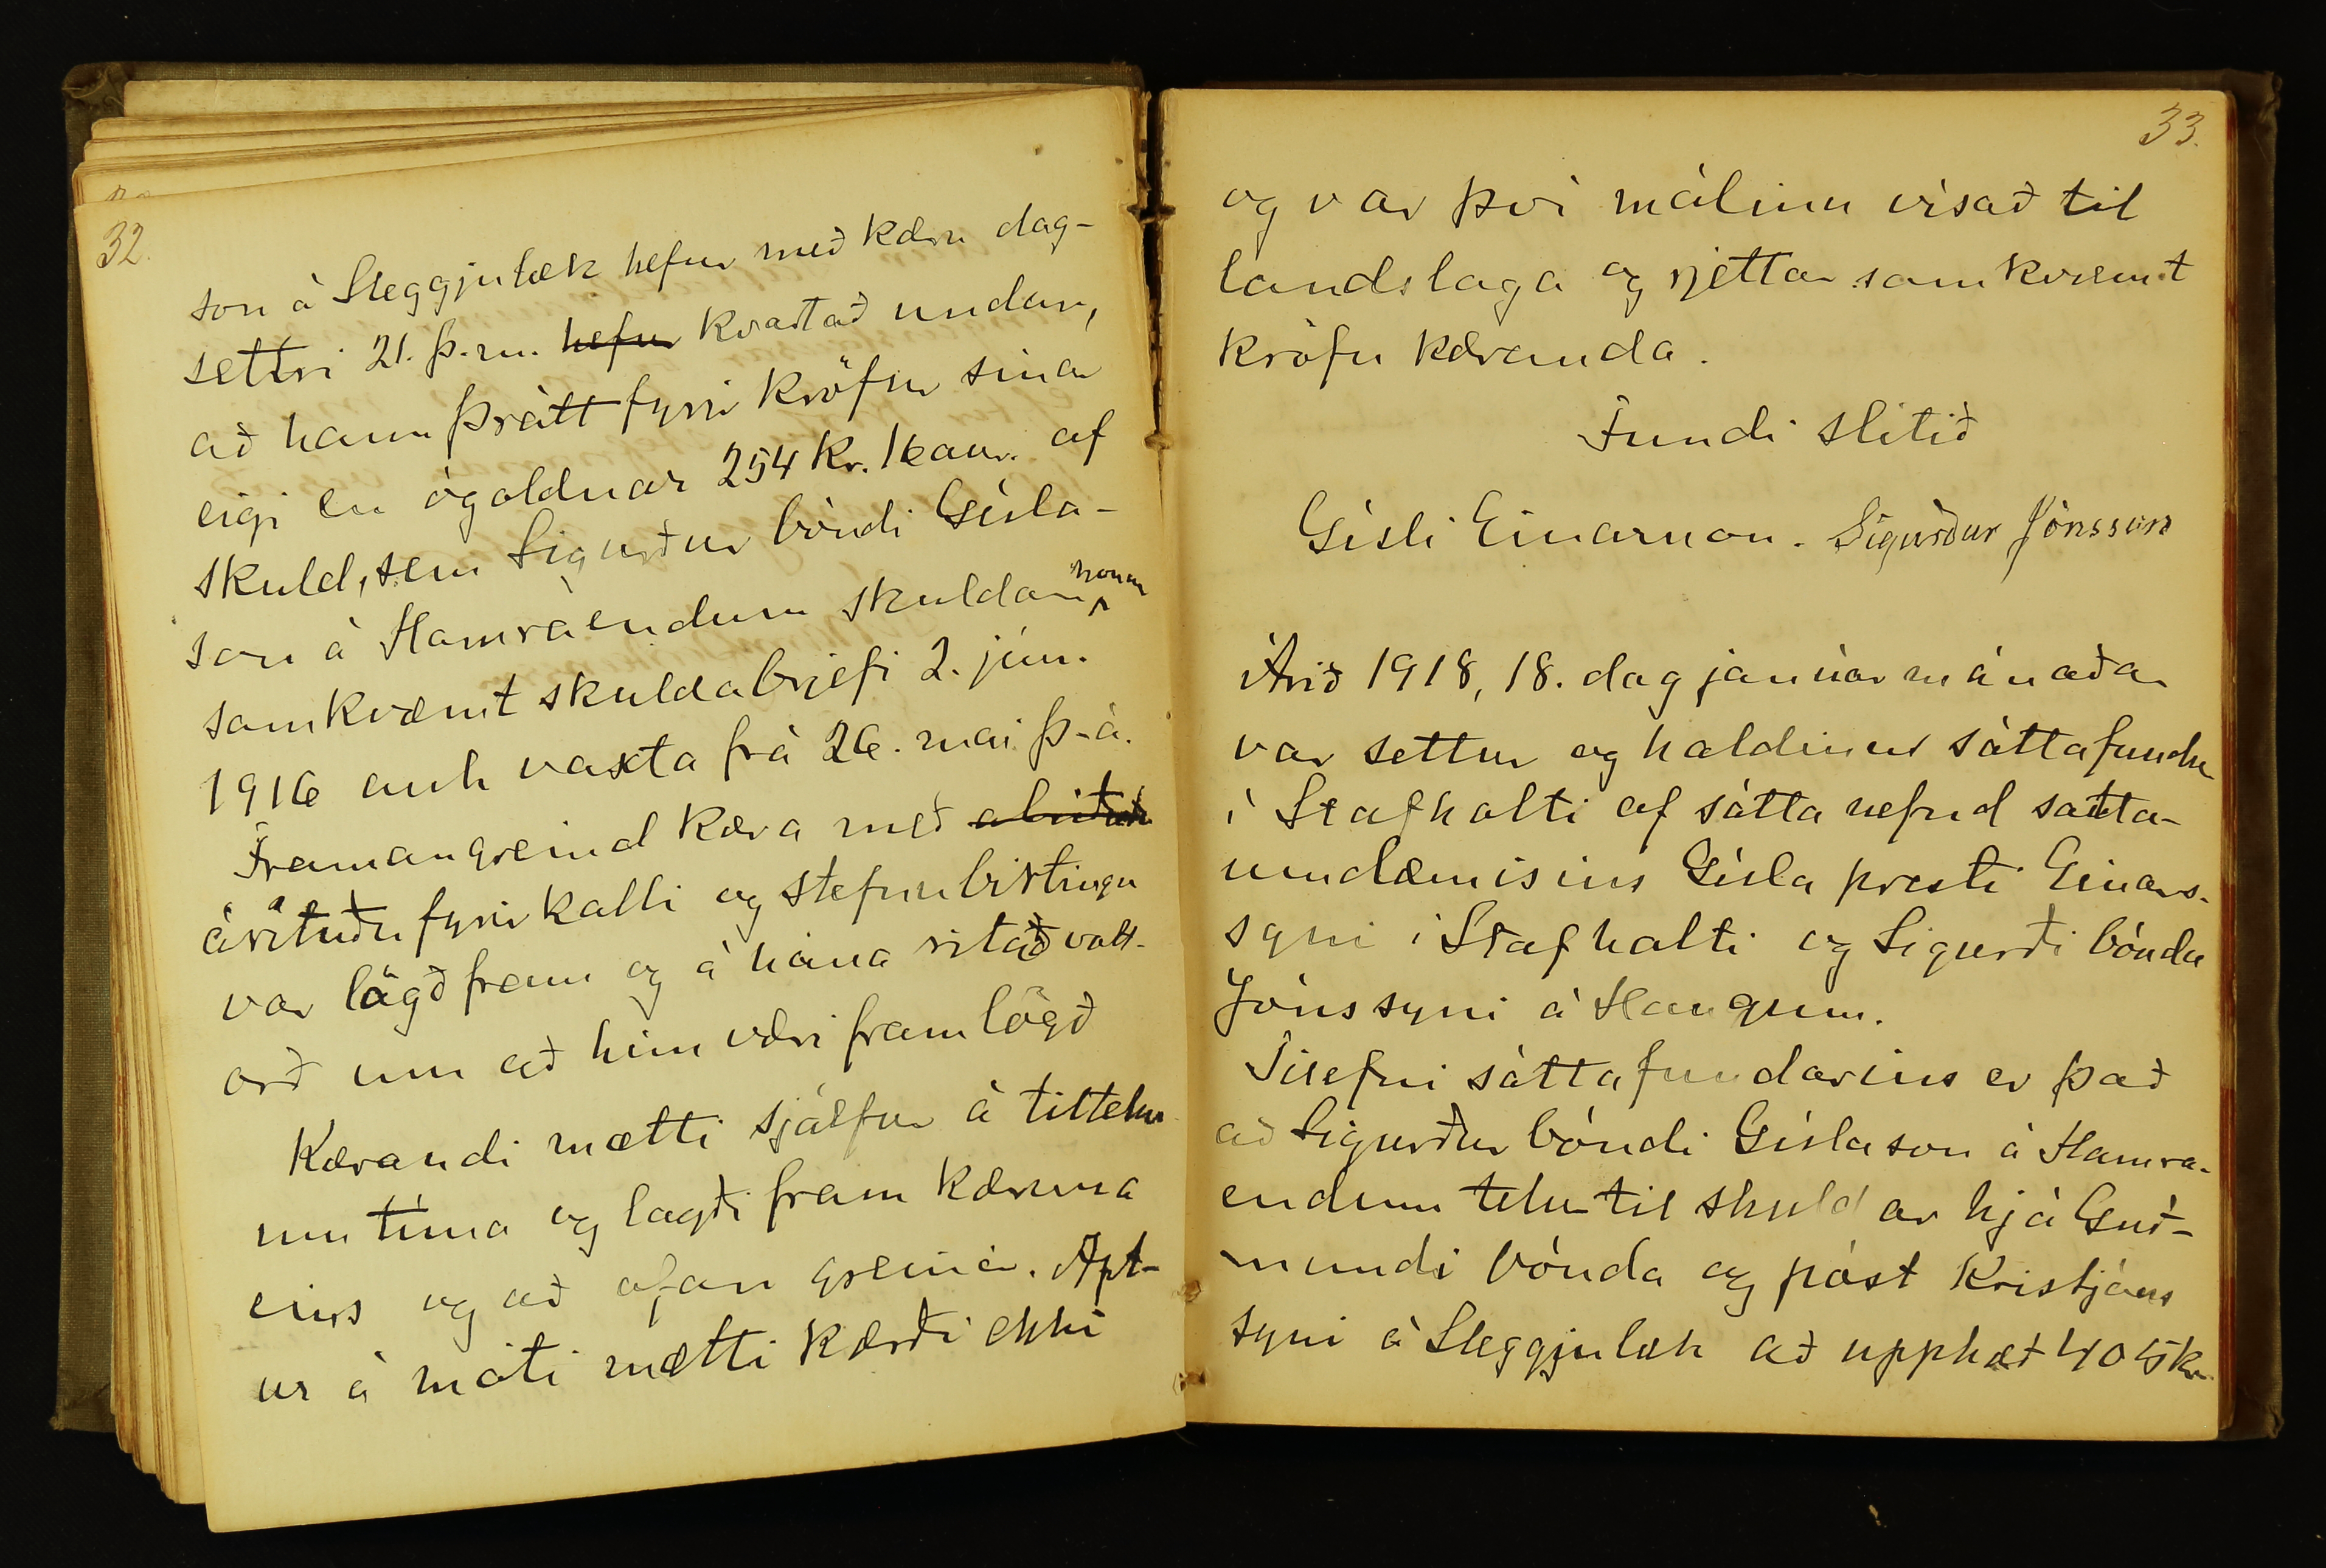 32.
son á Sleggjulæk hefur með kæru dag-
settri 21. þ.m. hefur kvartað undan,
að hann þrátt fyrir kröfur sínar
eigi en ógoldnar 254 kr. 16 aur. af
skuld, sem Sigurður bóndi Gísla-
son á Hamraendum skuldar honum
samkvæmt skuldabrjefi 2. jún.
1916 auk vaxta frá 26. mai þ.á.
Framangreind kæra með
árituðu fyrirkalli og stefnubirtingu
var lögð fram og á hana ritað vott-
orð um að hún væri framlögð
Kærandi mætti sjálfur á tilteknum
tíma og lagði fram kæruna
eins og að ofan greinir. Apt-
ur á móti mætti kærði ekki
33.
og var því málinu vísað til
landslaga og rjettar samkvæmt
kröfu kæranda.
Fundi slitið
Gísli Einarsson. Sigurður Jónsson
Árið 1918, 18. dag janúarmánaðar
var settur og haldinn sáttafundur
í Stafholti af sáttanefnd sátta-
umdæmisins Gísla presti Einars-
syni í Stafholti og Sigurði bónda
Jónssyni á Haugum.
Tilefni sáttafundarins er það
að Sigurður bóndi Gíslason á Hamra-
endum telur til skuldar hjá Guð-
mundi bónda og póst Kristjáns
syni á Sleggjulæk að upphæð 405 kr.